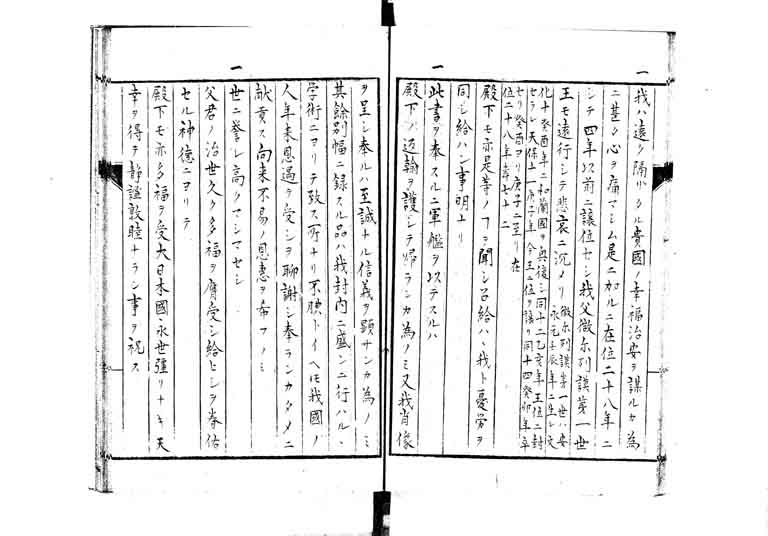 一
我ハ遠ク隔リタル貴國ノ幸福治安ヲ謀ルカ為
ニ甚タ心ヲ痛マシム是ニ加ルニ在位二十八年ニ
シテ四年以前ニ讓位セシ我父微尓列謨第一世
王モ遠行シテ悲哀ニ沉メリ微尓列謨第一世ハ安永元壬辰年ニ生レ文
化十癸酉年ニ和蘭國ヲ興復シ同十二乙亥年王位ニ封
セラレ天保十一庚子年今王ニ位ヲ讓リ同十四癸卯年卒
セリ癸酉ヨリ庚子ニ至リ在位二十八年壽七十二
殿下モ亦是等ノヿヲ聞シ召給ハヽ我ト憂労ヲ
同シ給ハン事明ナリ
此書ヲ奉スルニ軍艦ヲ以テスルハ
殿下ノ返翰ヲ護シテ帰ランカ為ノミ又我肖像
一
ヲ呈シ奉ルハ至誠ナル信義ヲ顕サンカ為ノミ
其餘別幅ニ録スル品ハ我封内ニ盛ンニ行ハルヽ
学術ニヨリテ致ス所ナリ不腆トイヘ𪜈我國ノ
人年来恩遇ヲ受シヲ聊謝シ奉ランカタメニ
献貢ス向来不易ノ恩惠ヲ希フノミ
世ニ誉レ高クマシマセシ
父君ノ治世久ク多福ヲ膺受シ給ヒシヲ眷佑
セル神德ニヨリテ
殿下モ亦多福ヲ受大日本國永世彊リナキ天
幸ヲ得テ静謐敦睦ナラン事ヲ祝ス